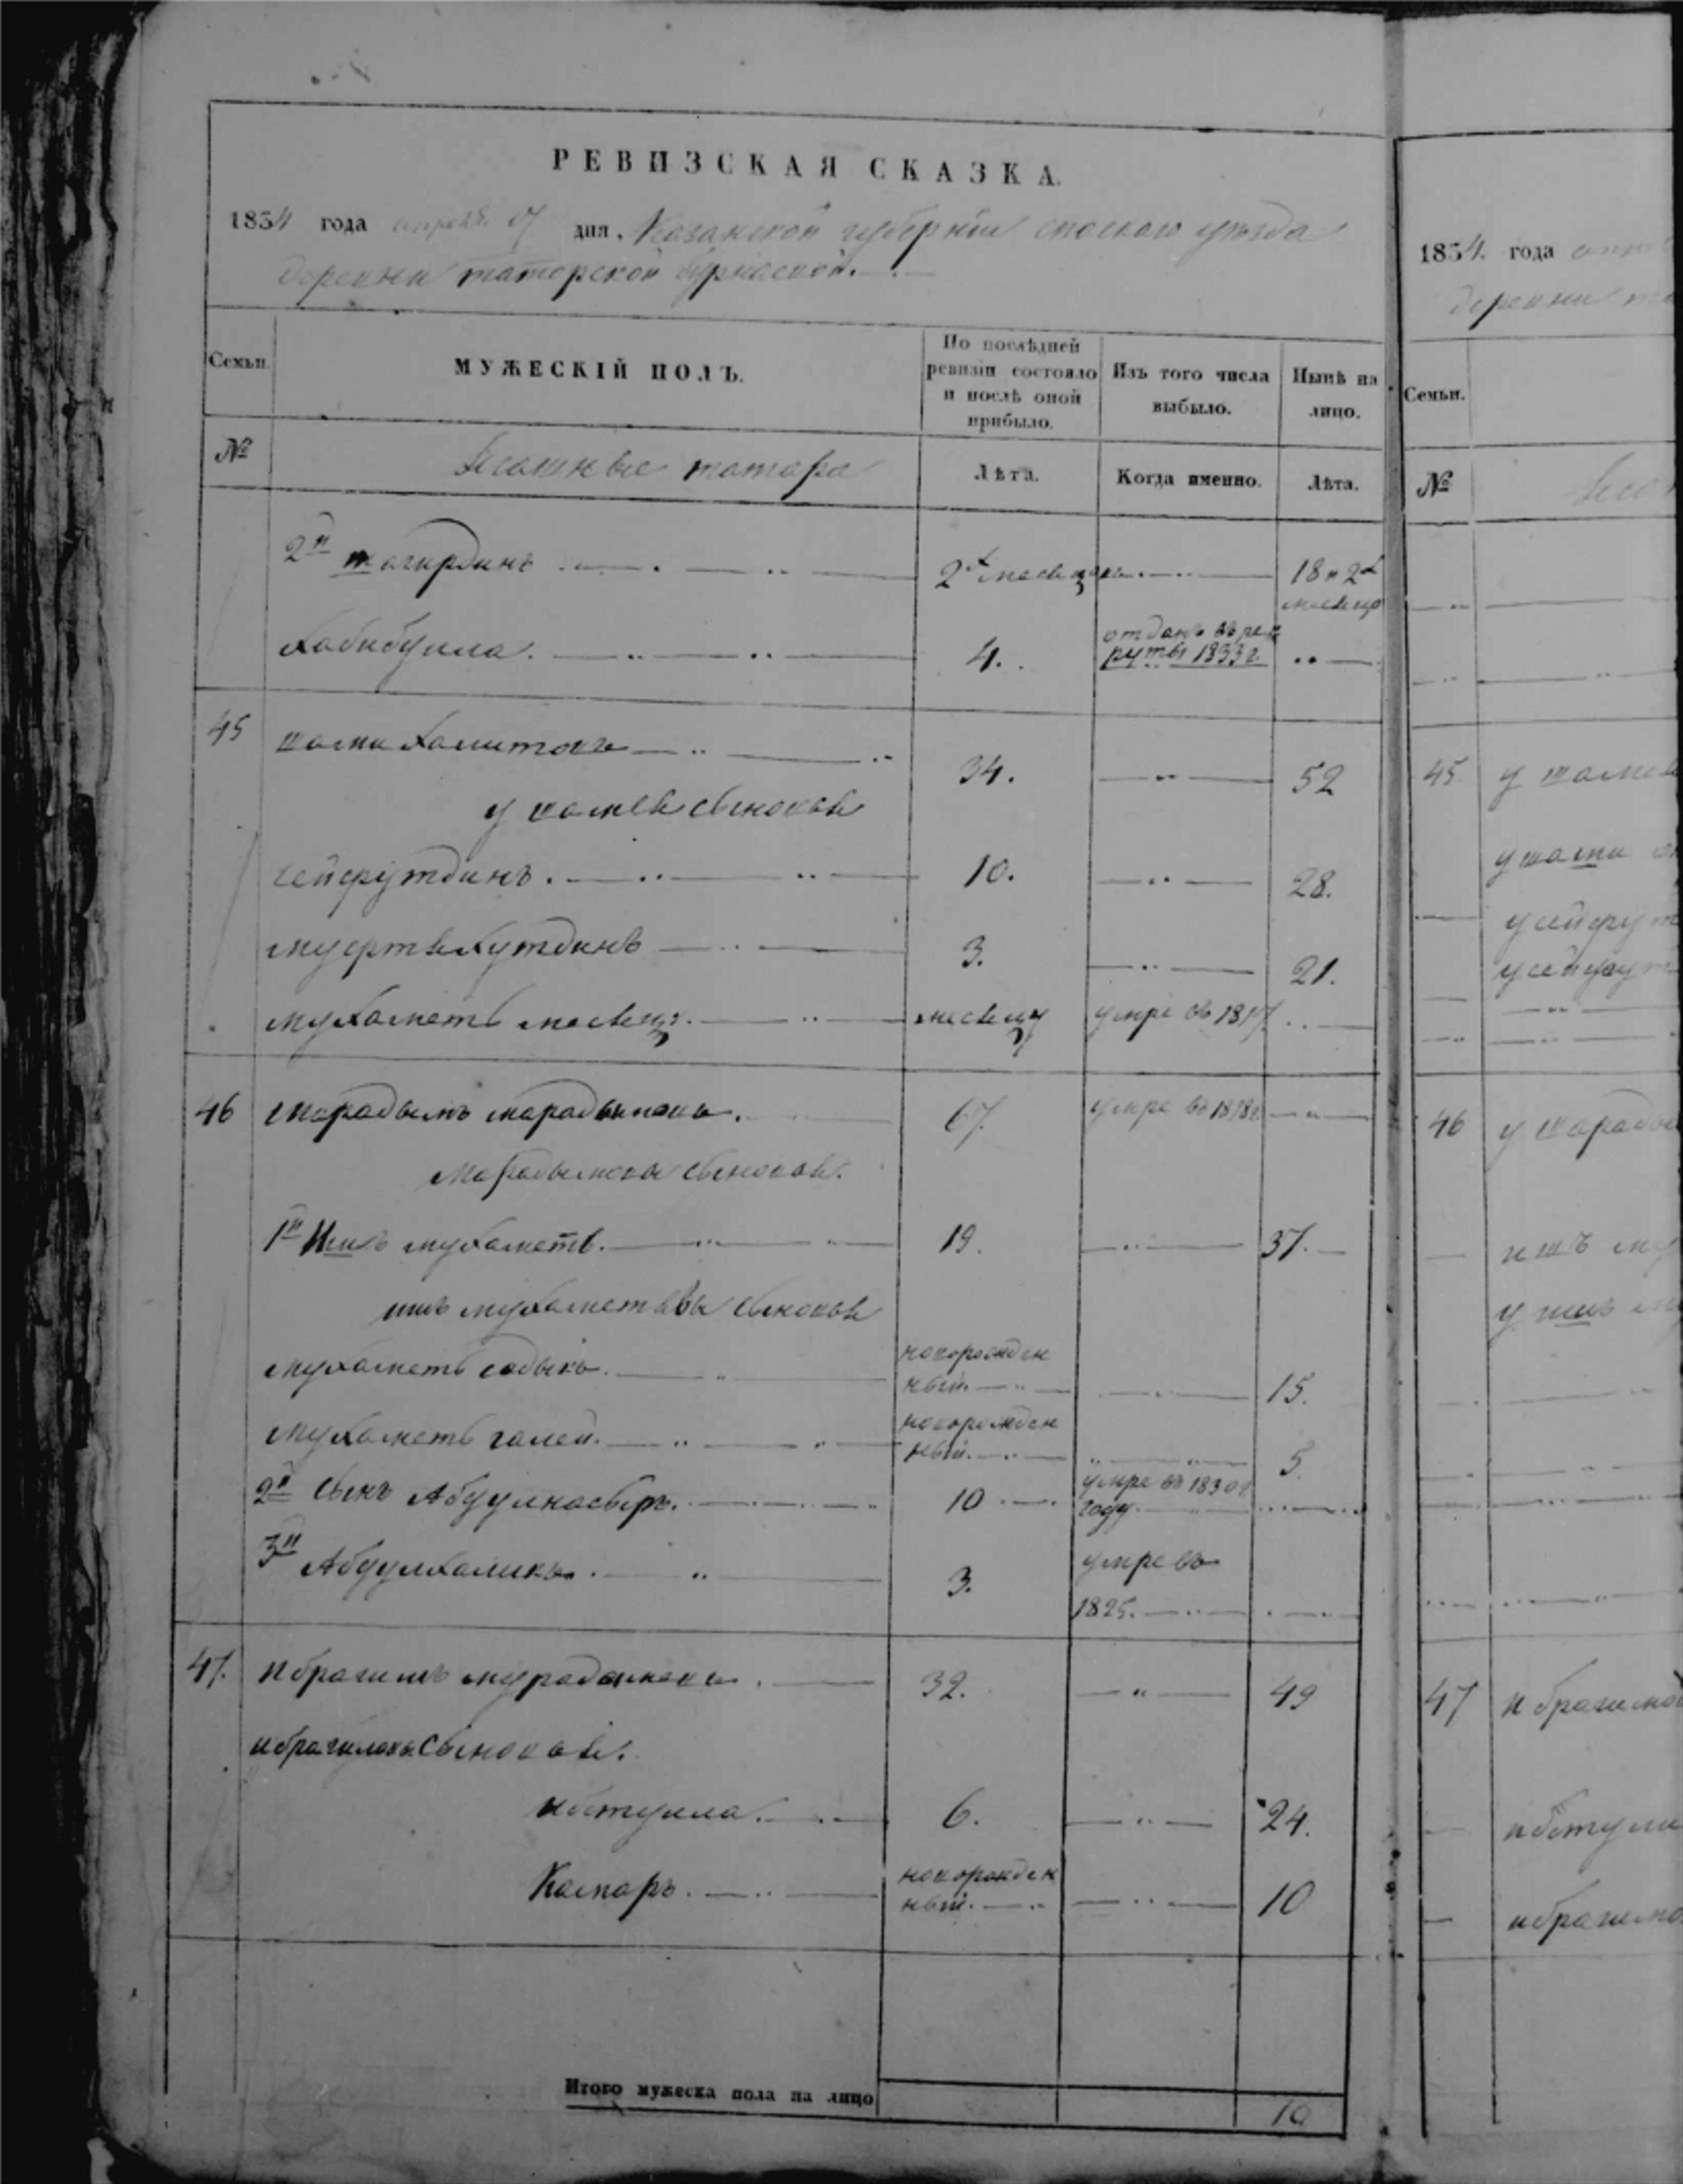 РЕВИЗСКАЯ СКАЗКА.
1834 года дня. Казанской губернии спаского уѣзда
деревни таторской бурнаской.
Семьи.
МУЖЕСКІЙ ПОЛЪ.
По послѣдней ревизіи состояло и послѣ оной прибыло.
Изъ того числа выбыло.
Нынѣ на лицо.
№ Ясашные татара Лѣта. Когда именно. Лѣта.
2й тагирдинъ 2х месецовъ 18 и 2х месецо
хабибулла. 4. отданъ въ рекруты 1833 г.
45 шами хамитовъ 34. 52
у шамея сыновья
сейфутдинъ. 10. 28.
3. 21.
мухаметь месецъ. месецу умре въ 1817
46 марадымъ марадымовъ. 67. умре въ 1818 г.
марадымовы сыновья.
1й Ишъ мухаметь. 19. 37.
ишъ мухаметевы сыновья
мухаметь садыкъ. новорожденный. 15.
мухаметь галей. новорожденный. 5.
2й сынъ Абдулнасыръ. 10 умре въ 1830 г году.
3й Абдулхаликъ. 3. умре въ 1825.
47. ибрагимъ мурадымовъ. 32. 49
ибрагимовы сыновья.
ибетулла. 6. 24.
Камаръ. новорожденный. 10
Итого мужеска пола на лицо 10
1834. года
деревни
Семьи.
№
45. у шамея
у шами
у сейфут
у сейфут
46
ишъ му
у ишъ му
47 ибрагимо
ибетулл
ибрагимо